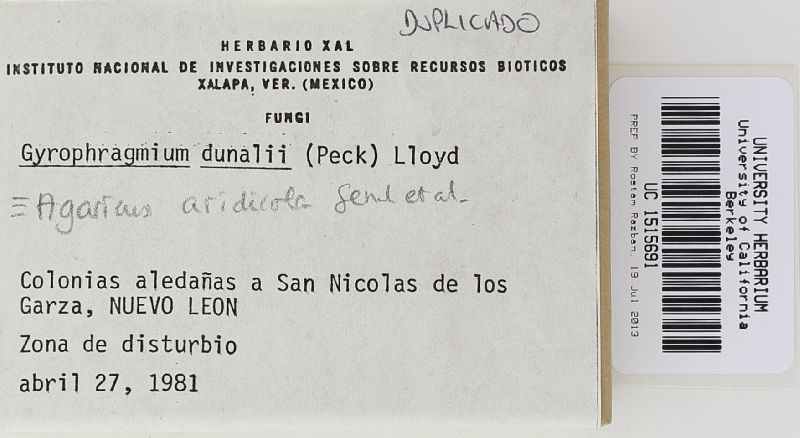 DUPLICADO
HERBARIO XAL
INSTITUTO NACIONAL DE INVESTIGACIONES SOBRE RECURSOS BIOTICOS
XALAPA, VER. (MEXICO)
FUNGI
Gyrophragmium dunalii (Peck) Lloyd
≡ Agaricus aridicola et al.
Colonias aledañas a San Nicolas de los
Garza, NUEVO LEON
Zona de disturbio
abril 27, 1981
UNIVERSITY HERBARIUM
University of California
Berkeley
UC 1515691
PREP BY Rostam Razban, 19 Jul 2013